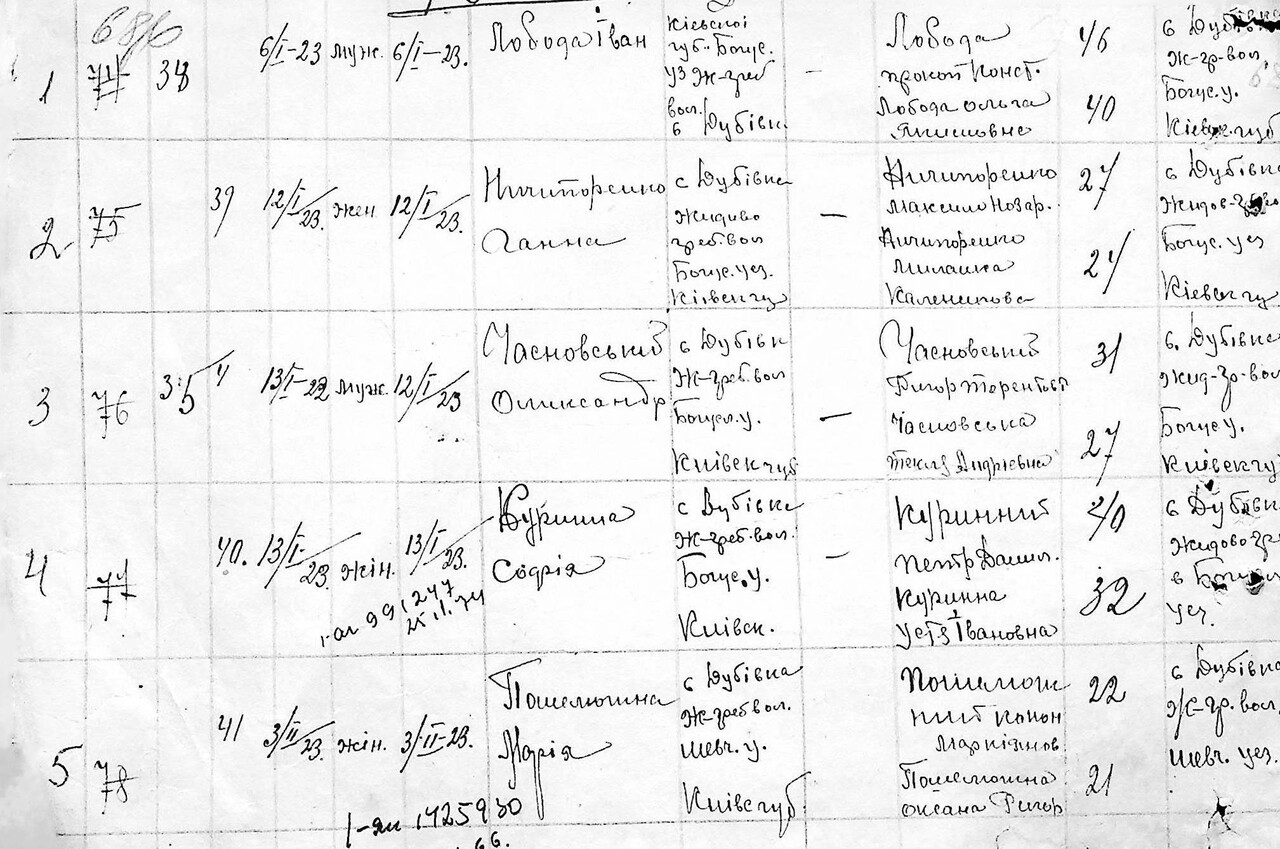 686
1 74 38 6/I-23 муж. 6/I-23. Лобода Іван
Кіевскої
губ. Богус.
уз Ж-греб
вол.
с Дубівк
—
Лобода
прокоп Конст.
Лобода Ольга
46
40
с Дубів
Ж-гр-вол,
Богус. у.
Кіевск. губ
2 75 39 12/I 23. жен 12/I 23.
Ничипоренко
Ганна
с Дубівка
Жидиво
греб. вол
Богус. уез.
Кіівск гу
—
Ничипоренко
Максим Назар.
Ничипоренко
Милашка
Каленикова
27
24
с Дубівка
Богус. уез
Кіевск гу
3 76 13/I-23 муж. 12/I 23
Часновський
Олександр
с Дубівк
Ж-греб. вол
Богусл. у.
Київск губ
—
Часновський
Григор Терентьев
Часновська
Текля Андріевна
31
27
с. Дубівка
жид-гр-вол
Богус у.
Київск гу
4 77 40. 13/I- 23. жін. 13/I- 23.
Куринна
Софія
с Дубівка
Ж-греб. вол.
Богус. у.
Київск.
—
Куринний
Петр Данил.
Куринна
Устя Івановна
40
32
с Дубівка
Жидово-гр
в Богусл
уез.
5 78 41 3/II 23. жін. 3/II-23.
Пошелюжна
Марія
с Дубівка
Ж-греб вол.
шевч. у.
Київ губ
Пошелюж
ний Конон
Маркіянов.
Пошелюжна
Оксана Григор
22
21
с Дубівка
Ж-гр. вол,
шевч. уез.
I-яп 1425930
66.